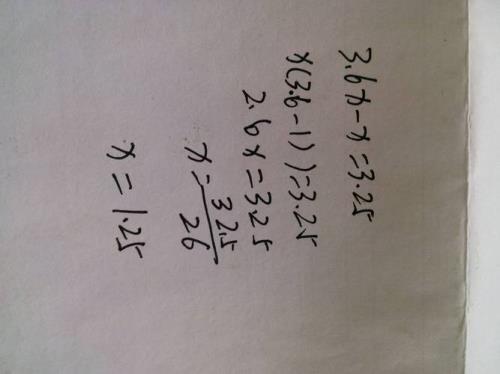 3.6x-x=3.25
x(3.6-1))=3.25
2.6x=3.25
x=32.5/26
x=1.25